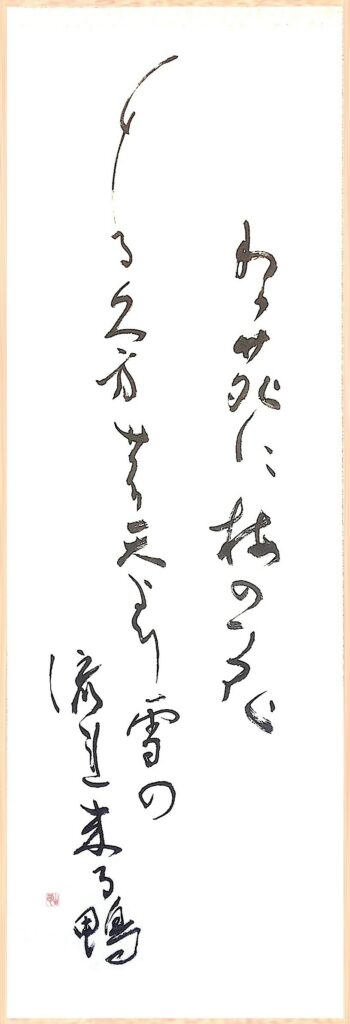 わか苑に梅の花
ちる久方の天より雪の
流連来る鴨